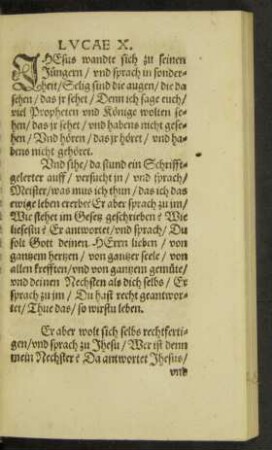 LVCAE X.
JHEsus wandte sich zu seinen
Jüngern / vnd sprach in sonder-
heit / Selig sind die augen / die da
sehen / das jr sehet / Denn ich sage euch /
viel Propheten vnd Könige wolten se-
hen / das jr sehet / vnd habens nicht gese-
hen / Vnd hören / das jr höret / vnd ha-
bens nicht gehöret.
Vnd sihe / da stund ein Schrifft-
gelerter auff / versucht jn / vnd sprach /
Meister / was mus ich thun / das ich das
ewige leben ererbe? Er aber sprach zu jm /
Wie stehet im Gesetz geschrieben? Wie
liesestu? Er antwortet / vnd sprach / Du
solt Gott deinen HErrn lieben / von
gantzem hertzen / von gantzer seele / von
allen krefften / vnd von gantzem gemüte /
vnd deinen Nechsten als dich selbs / Er
sprach zu jm / Du hast recht geantwor-
tet / Thue das / so wirstu leben.
Er aber wolt sich selbs rechtferti-
gen / vnd sprach zu Jhesu / Wer ist denn
mein Nechster? Da antwortet Jhesus /
vnd